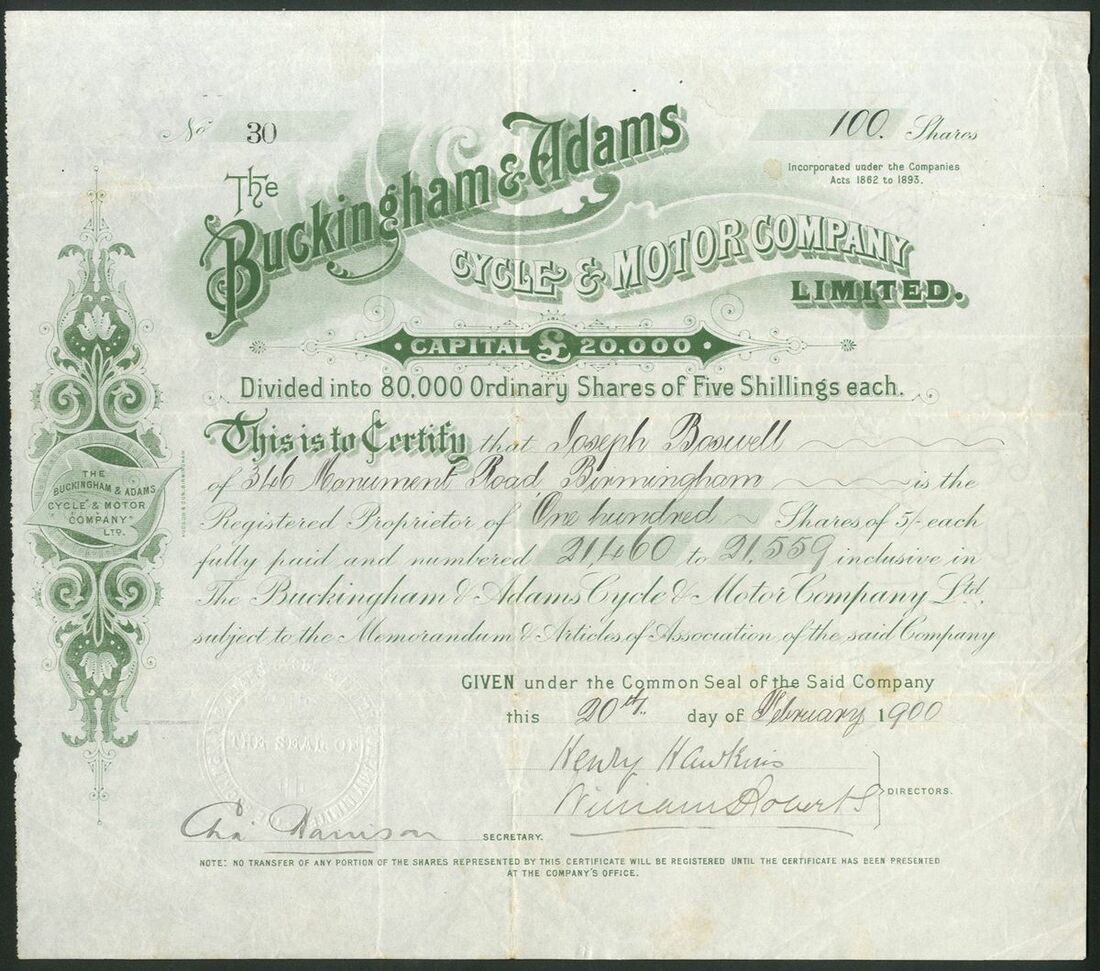 No 30
100. Shares
Incorporated under the Companies
Acts 1862 to 1893.
The
Buckingham & Adams
CYCLE & MOTOR COMPANY
LIMITED.
CAPITAL £ 20,000
Divided into 80,000 Ordinary Shares of Five Shillings each.
This is to Certify that Joseph Boswell
of 346 Monument Road, Birmingham is the
Registered Proprietor of One hundred Shares of 5/- each
fully paid and numbered 21,460 to 21,559 inclusive in
The Buckingham & Adams Cycle & Motor Company Ltd,
subject to the Memorandum & Articles of Association of the said Company
THE
BUCKINGHAM & ADAMS
CYCLE & MOTOR
COMPANY
LTD.
GIVEN under the Common Seal of the Said Company
this 20th. day of February 1900
Henry Hawkins
William Roberts
DIRECTORS.
THE SEAL OF
Chas Harrison
SECRETARY.
NOTE: NO TRANSFER OF ANY PORTION OF THE SHARES REPRESENTED BY THIS CERTIFICATE WILL BE REGISTERED UNTIL THE CERTIFICATE HAS BEEN PRESENTED
AT THE COMPANY'S OFFICE.